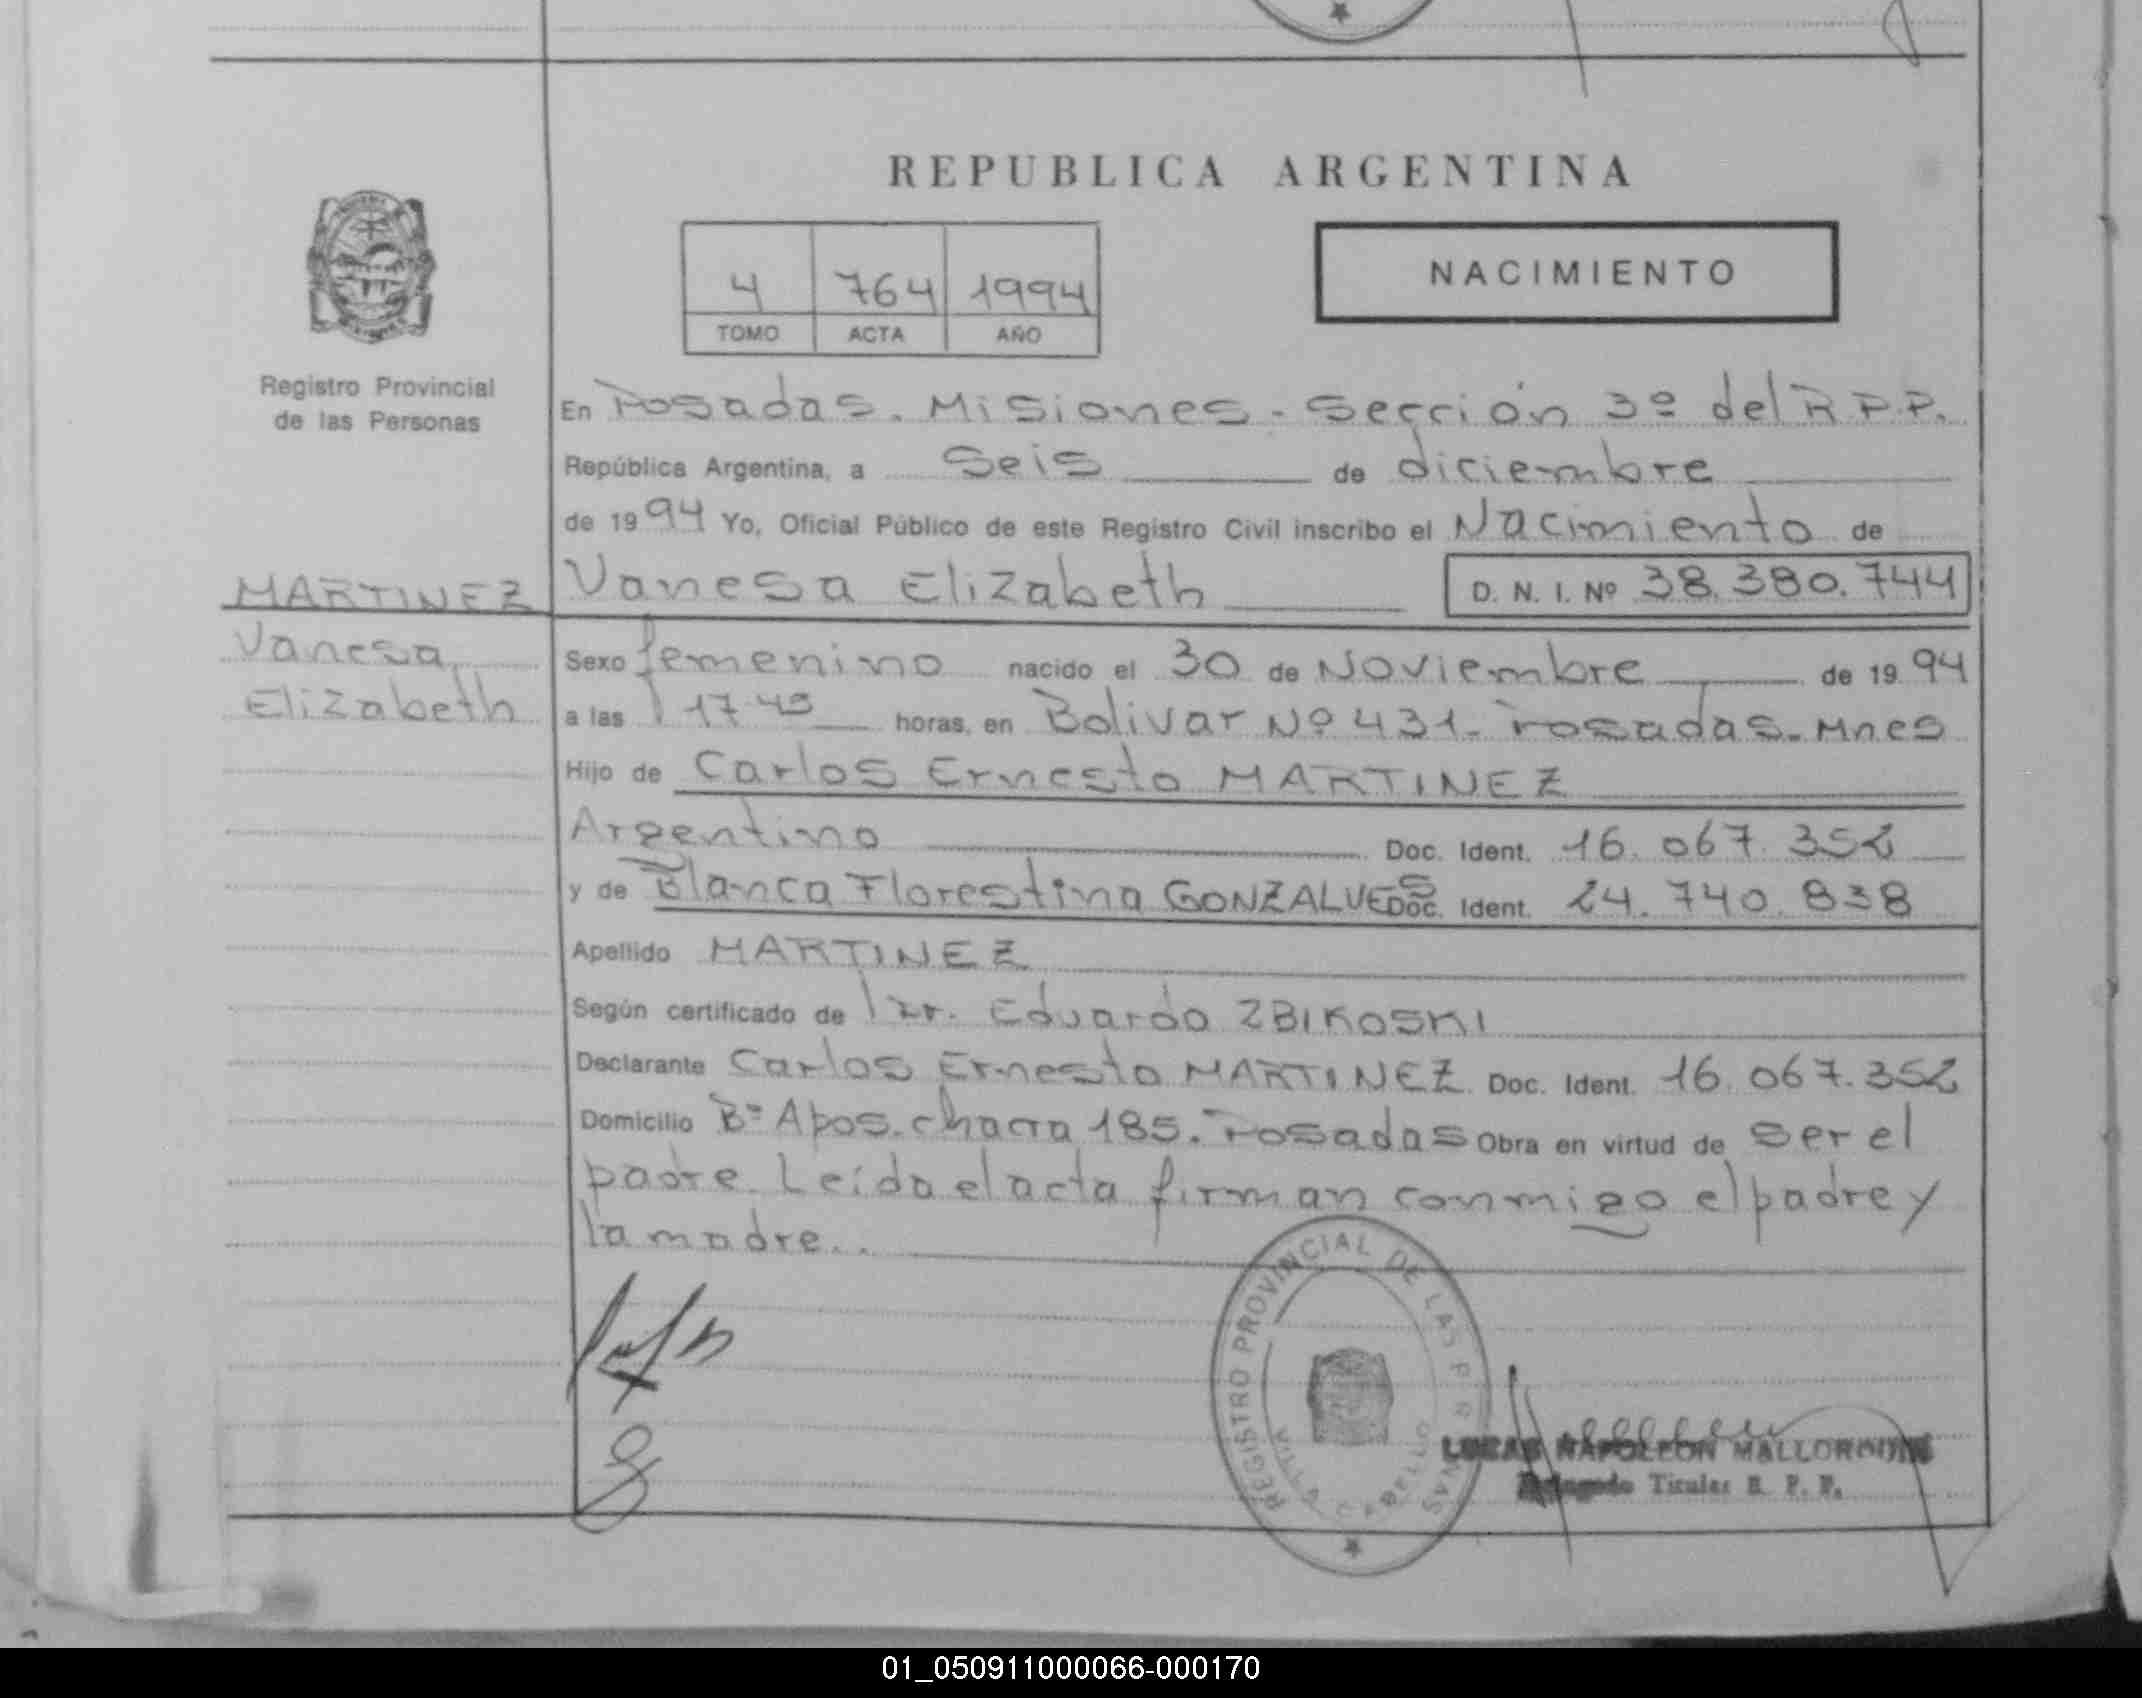 REPUBLICA ARGENTINA
NACIMIENTO
4 764 1994
TOMO ACTA AÑO
Registro Provincial
de las Personas
En Posadas. Misiones - Sección 3º del R.P.P.
República Argentina, a seis de diciembre
de 1994 Yo, Oficial Público de este Registro Civil inscribo el Nacimiento de
Vanesa Elizabeth D. N. I. Nº 38.380.744
MARTINEZ
Vanesa
Elizabeth
Sexo femenino nacido el 30 de Noviembre de 1994
a las 17 45 horas, en Bolivar Nº 431. Posadas. Mnes
Hijo de Carlos Ernesto MARTINEZ
Argentino Doc. Ident. 16.067.352
y de Blanca Florestina GONZALVES Doc. Ident. 24.740.838
Apellido MARTINEZ
Según certificado de Dr. Eduardo ZBIKOSKI
Declarante Carlos Ernesto MARTINEZ Doc. Ident. 16.067.352
Domicilio Bº Apos. chacra 185. Posadas Obra en virtud de ser el
padre. Leída el acta firman conmigo el padre y
la madre..
REGISTRO PROVINCIAL DE LAS PERSONAS
VILLA CABELLO
LUCAS NAPOLEON
Delegado Titular R. P. P.
01_050911000066-000170